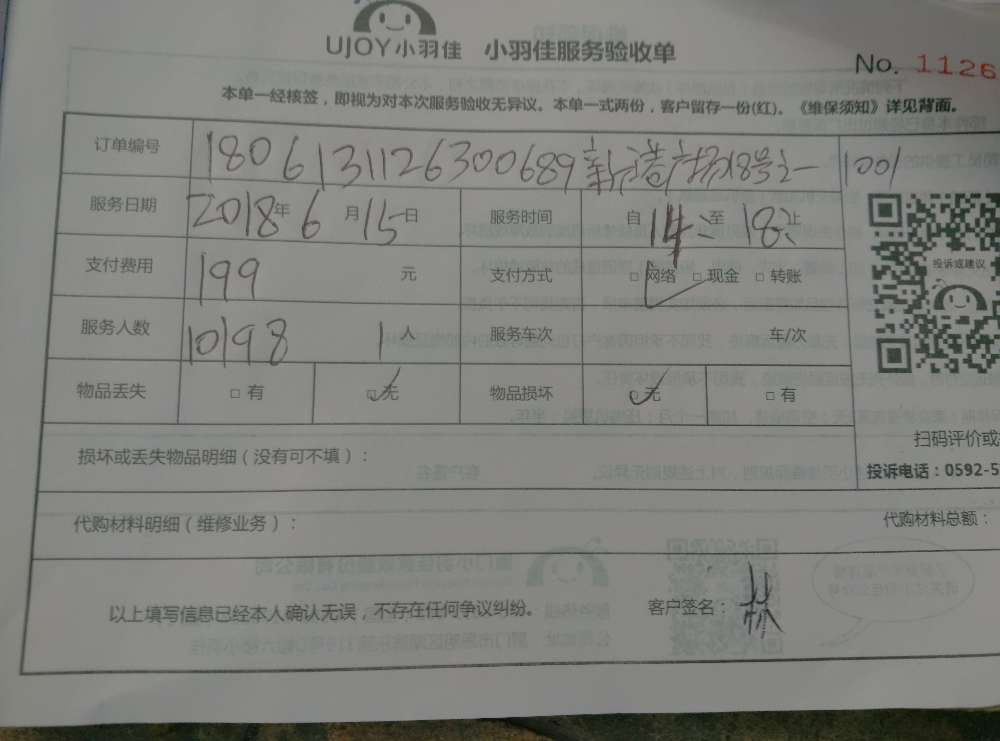 UJOY小羽佳 小羽佳服务验收单
No. 1126
本单一经核签，即视为对本次服务验收无异议。本单一式两份，客户留存一份(红)。《维保须知》详见背面。
订单编号 1806131126300689 新港广场18号之一 1001
服务日期 2018年6月15日 服务时间 自14:至18:止
支付费用 199 元 支付方式 □网络 □现金 □转账
投诉或建议
服务人数 10198 1人 服务车次 车/次
物品丢失 □有 □无 物品损坏 □无 □有
扫码评价或
损坏或丢失物品明细（没有可不填）：
投诉电话：0592-5
代购材料明细（维修业务）： 代购材料总额：
以上填写信息已经本人确认无误，不存在任何争议纠纷。 客户签名：林